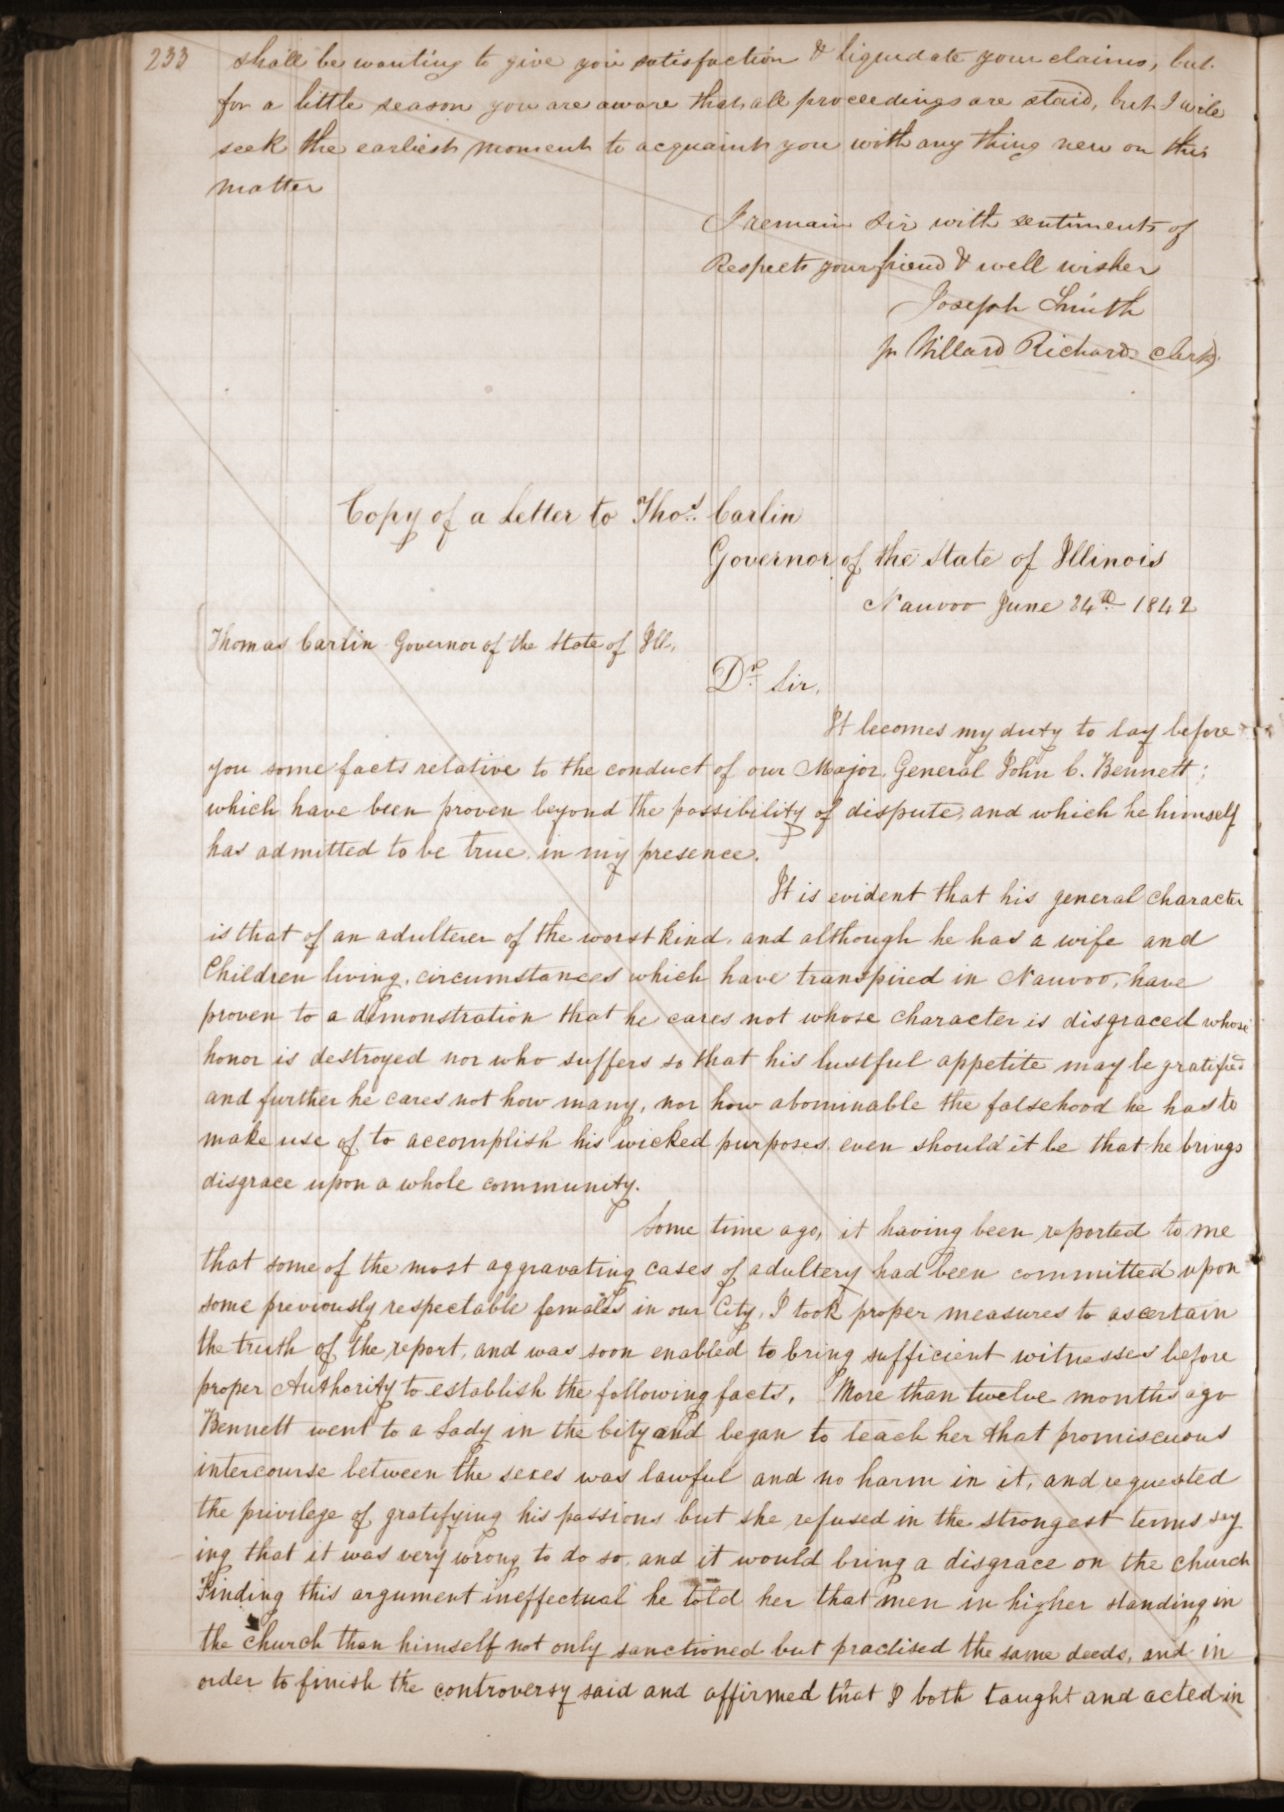 233 shall be wanting to give you satisfaction & liquidate your claims, but
for a little season you are aware that all proceedings are staid, but I will
seek the earliest moment to acquaint you with any thing new on this
matter
I remain Sir with sentiments of
Respects your friend & well wisher
Joseph Smith
pr Willard Richards clerk
Copy of a Letter to Thos. Carlin
Governor of the State of Illinois
Nauvoo June 24th 1842
Thomas Carlin Governor of the State of Ill,
Dr. Sir,
It becomes my duty to lay before
you some facts relative to the conduct of our Major, General John C. Bennett;
which have been proven beyond the possibility of dispute, and which he himself
has admitted to be true in my presence.
It is evident that his general character
is that of an adulterer of the worst kind, and although he has a wife and
Children living, circumstances which have transpired in Nauvoo, have
proven to a demonstration that he cares not whose character is disgraced whose
honor is destroyed nor who suffers so that his lustful appetite may be gratified
and further he cares not how many, nor how abominable the falsehood he has to
make use of to accomplish his wicked purposes, even should it be that he brings
disgrace upon a whole community.
Some time ago, it having been reported to me
that some of the most aggravating cases of adultery had been committed upon
some previously respectable females in our City, I took proper measures to ascertain
the truth of the report, and was soon enabled to bring sufficient witnesses before
proper Authority to establish the following facts. More than twelve months ago
Bennett went to a Lady in the City and began to teach her that promiscuous
intercourse between the sexes was lawful and no harm in it, and requested
the privilege of gratifying his passions but she refused in the strongest terms say
ing that it was very wrong to do so, and it would bring a disgrace on the church
Finding this argument ineffectual he told her that men in higher standing in
the church than himself not only sanctioned but practised the same deeds, and in
order to finish the controversy said and affirmed that I both taught and acted in